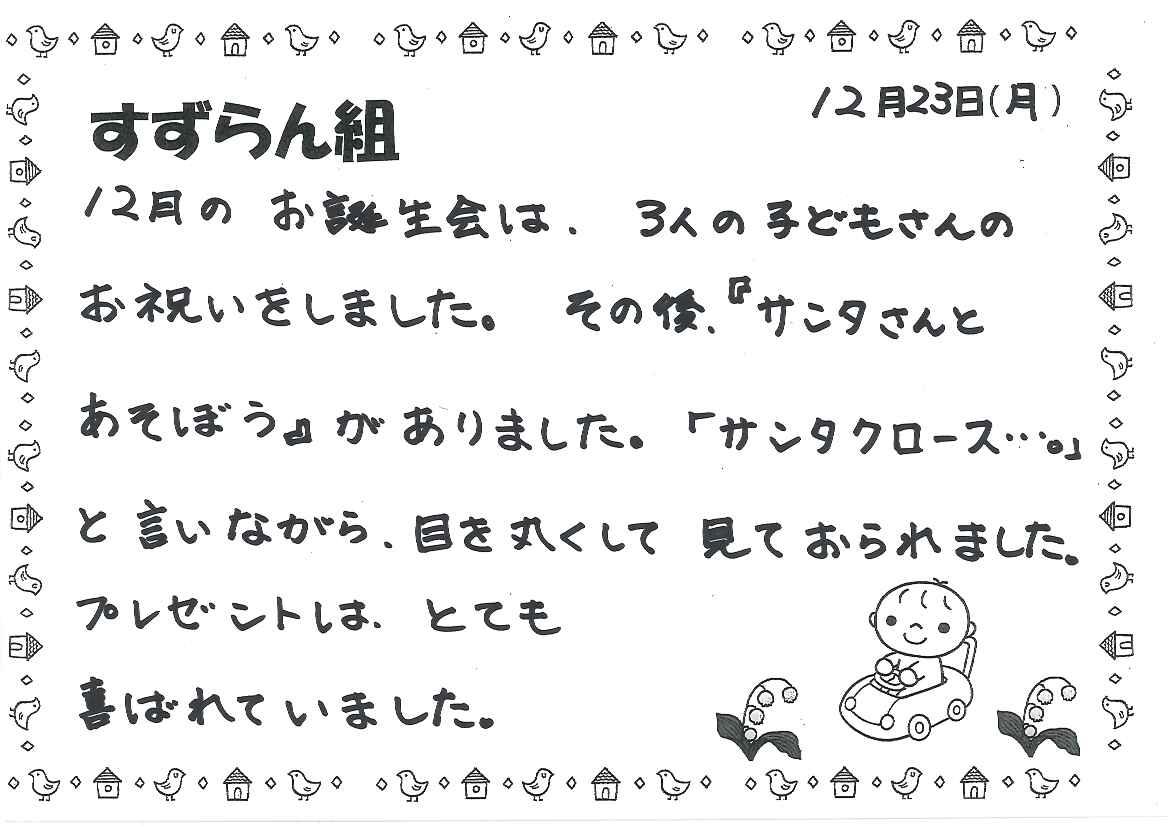 12月23日(月)
すずらん組
12月の お誕生会は、 3人の子どもさんの
お祝いをしました。 その後、『サンタさんと
あそぼう』が ありました。「サンタクロース…。」
と 言いながら、目を丸くして 見ておられました。
プレゼントは、 とても
喜ばれていました。